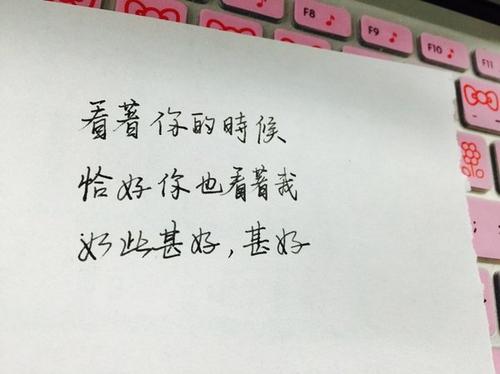 F8
F9
F10
F11
看著你的時候
恰好你也看著我
如此甚好,甚好